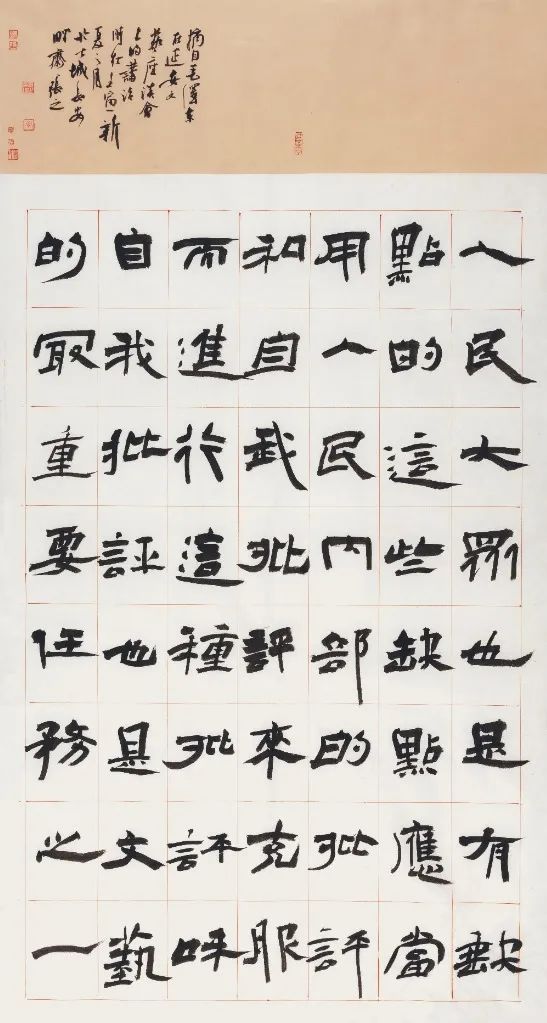 人民大眾也是有缺
點的這些缺點應當
用人民内部的批評
和自我批評來克服
而進行這種批評咊
自我批評也是文藝
的最重要任務之一
摘自毛澤東
在延安文
藝座談會
上的講話
時在壬寅新
夏之月
城長安
齋張之